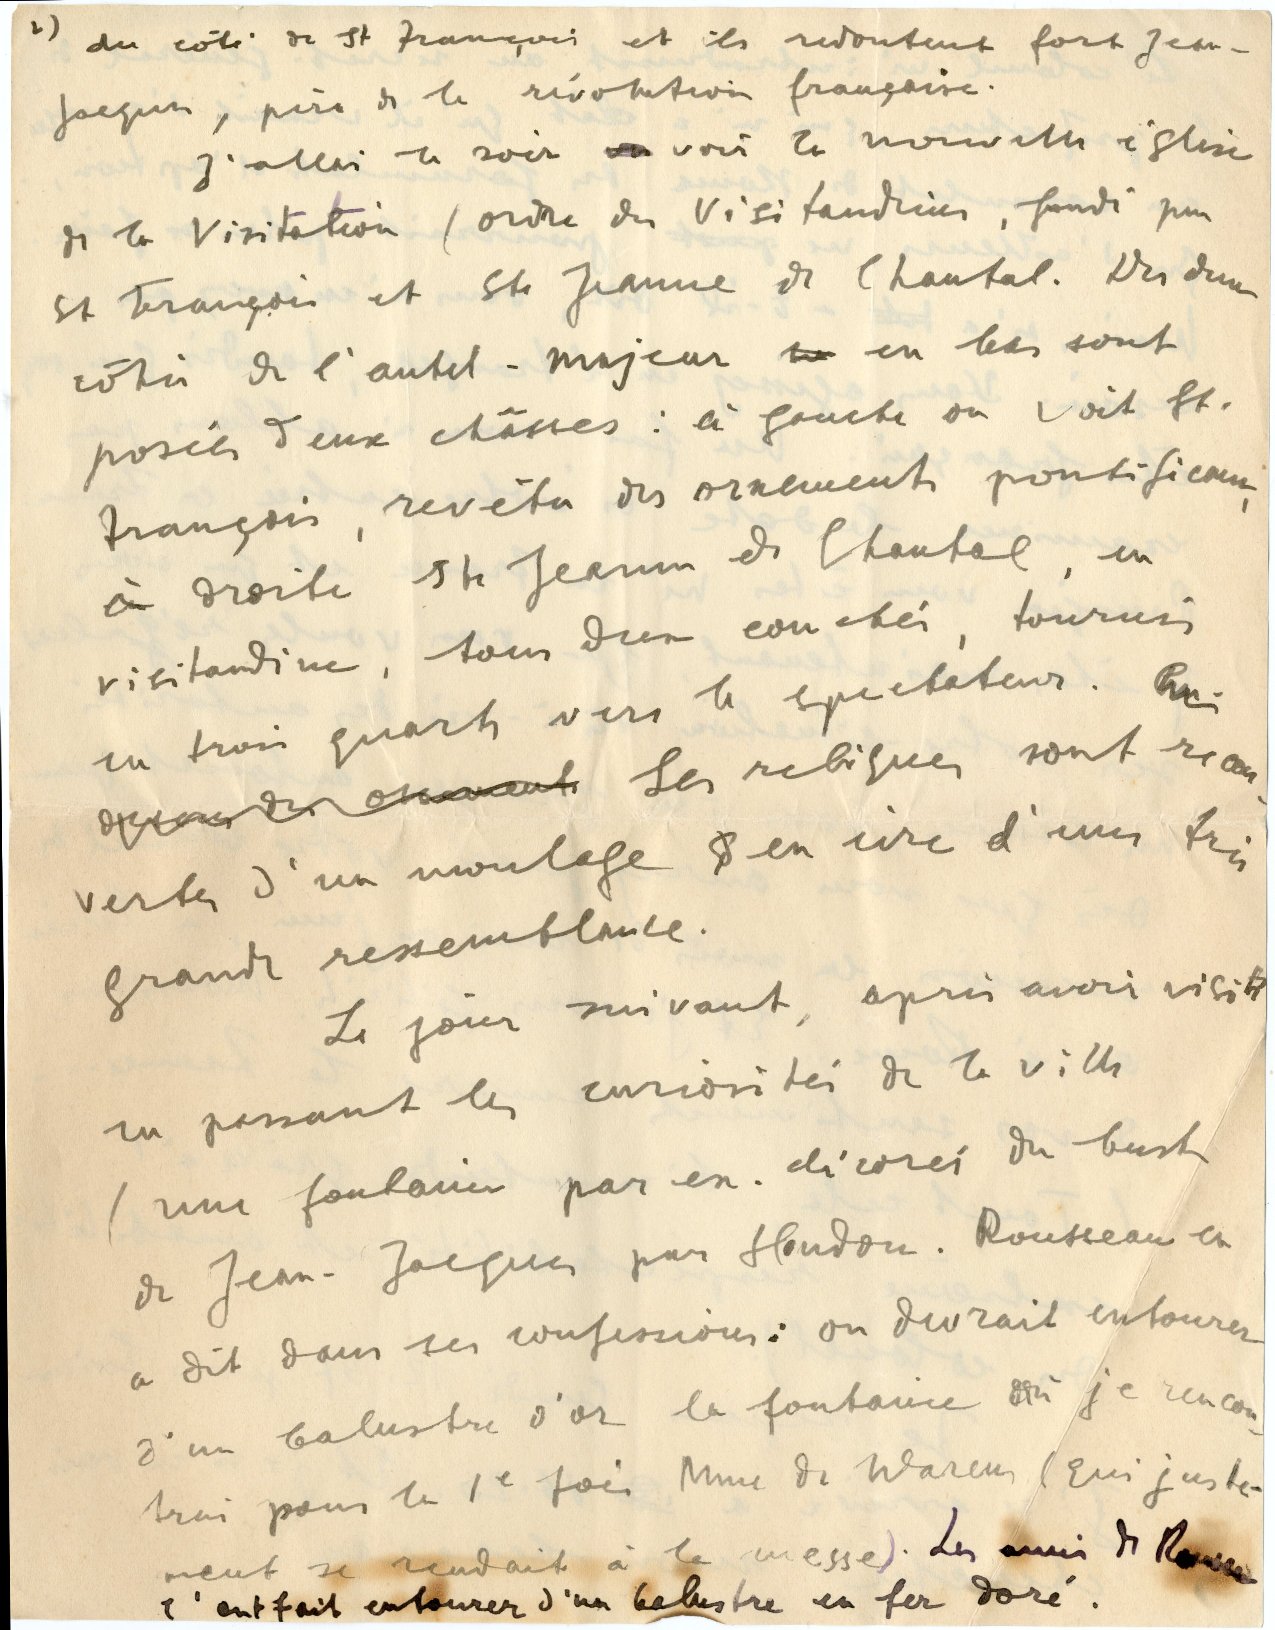 2) du côté de St François et ils redoutent fort Jean-
Jacques, père de la révolution française.
J'allai le soir voir la nouvelle église
de la Visitation (ordre des Visitandines, fondé par
St François et Ste Jeanne de Chantal. Des deux
côtés de l'autel-majeur en bas sont
posées deux châsses : à gauche on voit St.
François, revêtu des ornements pontificaux,
à droite Ste Jeanne de Chantal, en
visitandine, tous deux couchés, tournés
en trois quarts vers le spectateur.
Les reliques sont recou-
vertes d'un moulage en cire d'une très
grande ressemblance.
Le jour suivant, après avoir visité
en passant les curiosités de la ville
(une fontaine par ex. décorée du buste
de Jean-Jacques par Houdon. Rousseau en
a dit dans ses confessions : on devrait entourer
d'un balustre d'or la fontaine où je rencon-
trai pour la 1e fois Mme de Warens (qui juste-
ment se rendait à la messe). Les amis de Rousseau
l'ont fait entourer d'un balustre en fer doré.